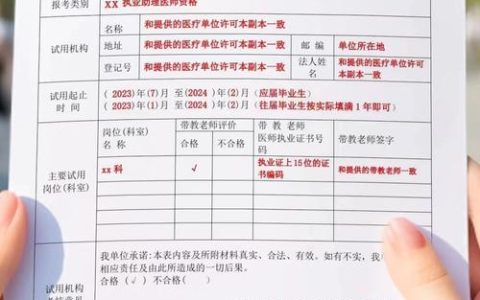 报考类别 XX 执业助理医师资格
试用机构
名称 和提供的医疗单位许可本副本一致
地址 和提供的医疗单位许可本副本一致 邮 编 单位所在地
登记号 和提供的医疗单位许可本副本一致 法人姓名 和提供的医疗单位许可本副本一致
试用起止时 间
( 2023)年(7)月 至(2024 )年(2)月(应届毕业生)
( 2023)年(1)月 至(2024 )年(2)月(往届毕业生按实际填满 1 年即可)
主要试用岗位(科室)
岗位(科室)名 称 带教老师评价 带 教 老师医师执业证书号码 带教老师签字
合格 不合格
xx 科 √ 执业证上 15 位的证书编码 和提供的带教老师一致
试用机构
我单位承诺:本表内容及所附材料真实、合法、有效。如有不实,我
相应责任及由此所造成的一切后果。
合格 (√ ) 不合格( )